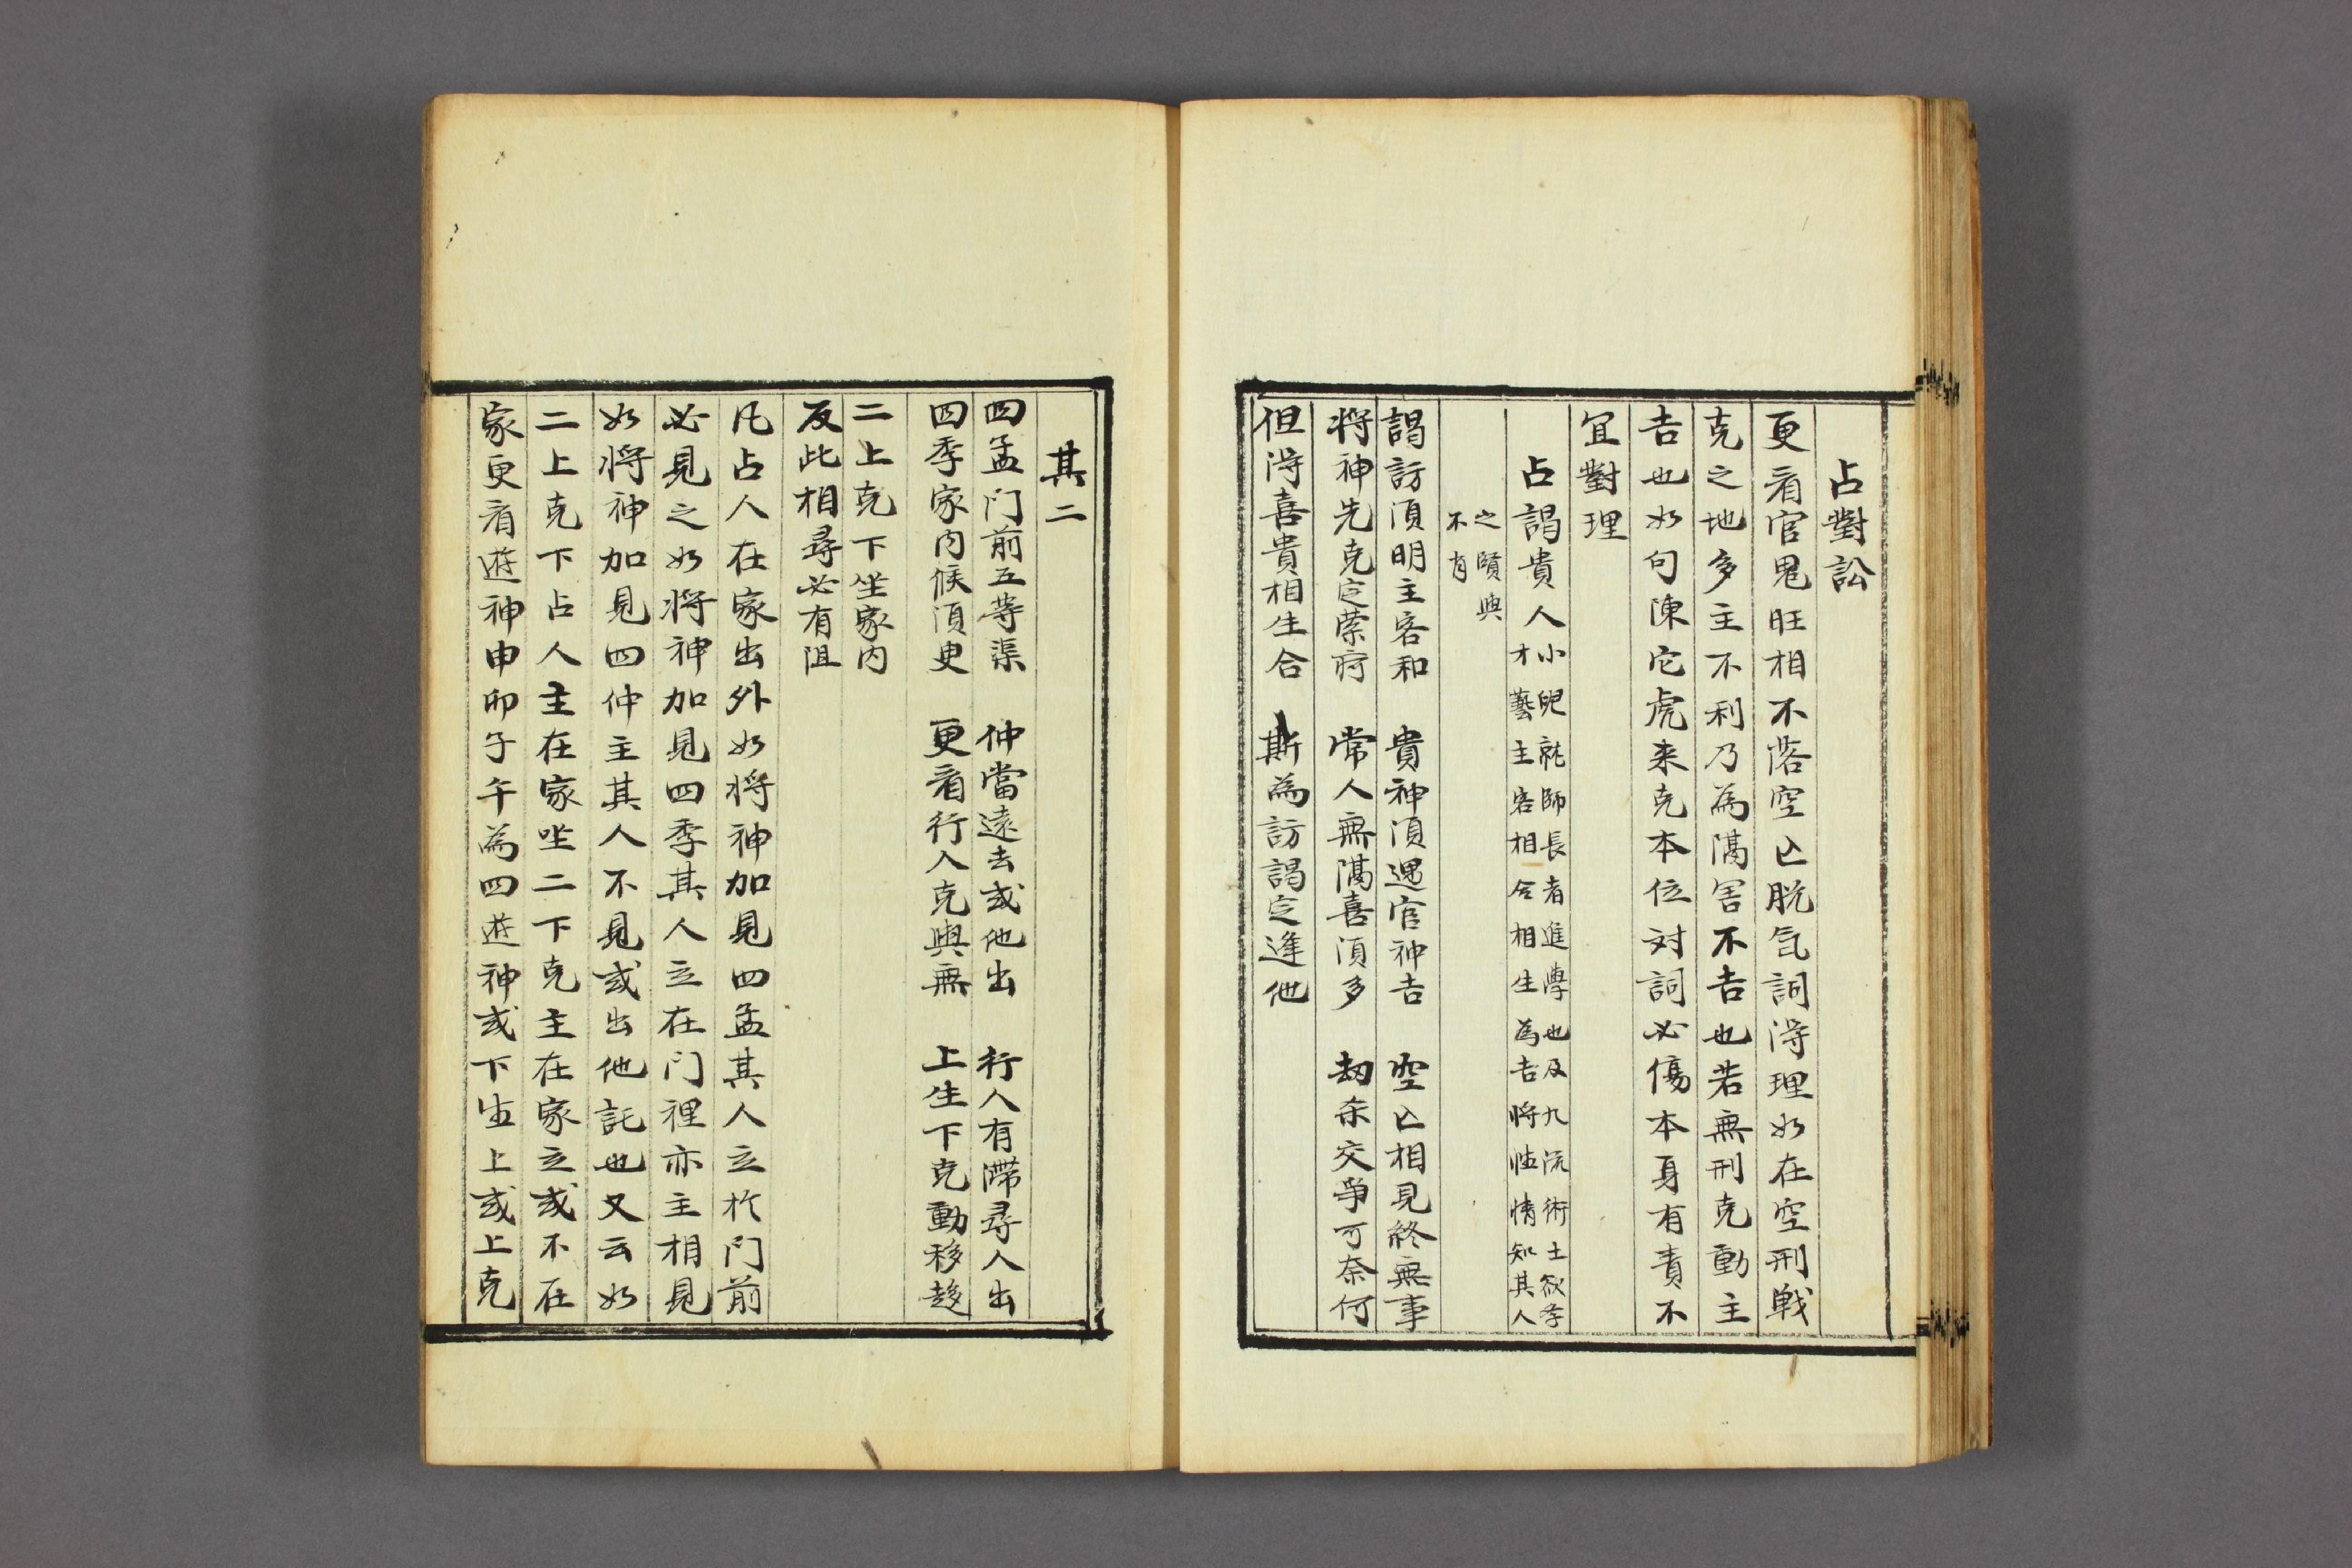 占對訟
更看官鬼旺相不落空亡脱气詞得理如在空刑戦
克之地多主不利乃為滿害不吉也若無刑克動主
吉也如句陳它虎来克本位対詞必傷本身有責不
宜對理
占謁貴人小兒就師長者進學也及九流術士欲孝
才藝主客相合相生為吉將性情知其人
之賢與
不肖
謁訪湏明主客和　貴神湏遇官神吉　空亡相見終無事
將神先克定榮府　常人無滿喜湏多　劫杀交爭可奈何
但得喜貴相生合　斯為訪謁定逢他
其二
四孟门前五等渠　仲當遠去或他出　行人有滯尋人出
四季家内候湏史　更看行人克與無　上生下克動移趍
二上克下坐家内
反此相尋必有阻
凡占人在家出外如將神加見四孟其人立於门前
必見之如將神加見四季其人立在门裡亦主相見
如將神加見四仲主其人不見或出他託也又云如
二上克下占人主在家坐二下克主在家立或不在
家更看遊神申卯子午為四遊神或下生上或上克